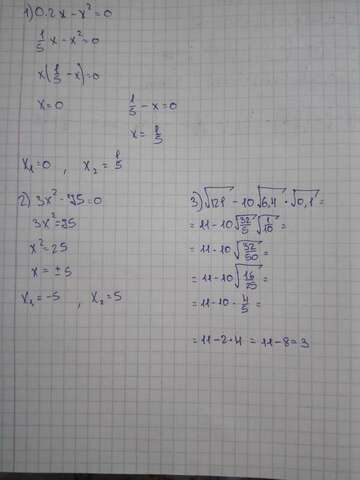 1) 0.2x - x² = 0
1/5 x - x² = 0
x(1/5 - x) = 0
x = 0    1/5 - x = 0
x = 1/5
x₁ = 0 , x₂ = 1/5
2) 3x² - 75 = 0
3x² = 75
x² = 25
x = ± 5
x₁ = -5 , x₂ = 5
3) √121 - 10√6,4 · √0,1 =
= 11 - 10√(32/5) √(1/10) =
= 11 - 10√(32/50) =
= 11 - 10√(16/25) =
= 11 - 10 · 4/5 =
= 11 - 2 · 4 = 11 - 8 = 3